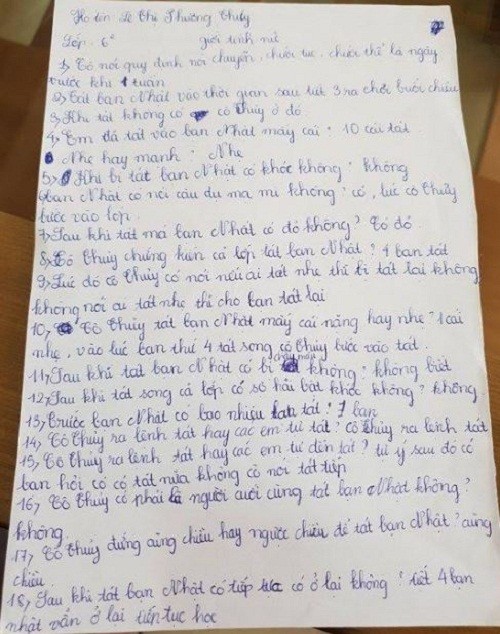 Họ tên Lê Thị Phương Thuỷ
Lớp. 6² giới tính nữ
1) Cô nói quy định nói chuyện, chửi tục, chửi thề là ngày
trước khi 1 tuần
2) Tát bạn Nhật vào thời gian sau tiết 3 ra chơi buổi chiều
3) Khi tát không có cô Thủy ở đó.
4) Em đã tát vào bạn Nhật mấy cái? 10 cái tát
Nhẹ hay mạnh? Nhẹ
5) Khi bị tát bạn Nhật có khóc không? không
6) bạn Nhật có nói câu đu ma mi không? có, lúc cô Thủy
bước vào lớp.
7) Sau khi tát má bạn Nhật có đỏ không? Có đỏ
8) Cô Thủy chứng kiến cả lớp tát bạn Nhật? 4 bạn tát
9) Lúc đó cô Thủy có nói nếu ai tát nhẹ thì bị tát lại không
không nói ai tát nhẹ thì cho bạn tát lại
10) Cô Thủy tát bạn Nhật mấy cái nặng hay nhẹ? 1 cái
nhẹ, vào lúc bạn thứ 4 tát song cô Thủy bước vào tát.
11) Sau khi tát bạn Nhật có bị chảy máu không? không biết
12) Sau khi tát song cả lớp có sợ hãi bật khóc không? không.
13) Trước bạn Nhật có bao nhiêu bạn tát? 7 bạn
14) Cô Thủy ra lệnh tát hay các em tự tát? Cô Thủy ra lệnh tát
15) Cô Thủy ra lệnh tát hay các em tự đến tát? tự ý sau đó có
bạn hỏi cô có tát nữa không cô nói tát tiếp
16) Cô Thủy có phải là người cuối cùng tát bạn Nhật không?
không.
17) Cô Thủy đứng cùng chiều hay ngược chiều để tát bạn Nhật? cùng
chiều.
18) Sau khi tát bạn Nhật có tiếp tục có ở lại không? tiết 4 bạn
nhật vẫn ở lại tiếp tục học